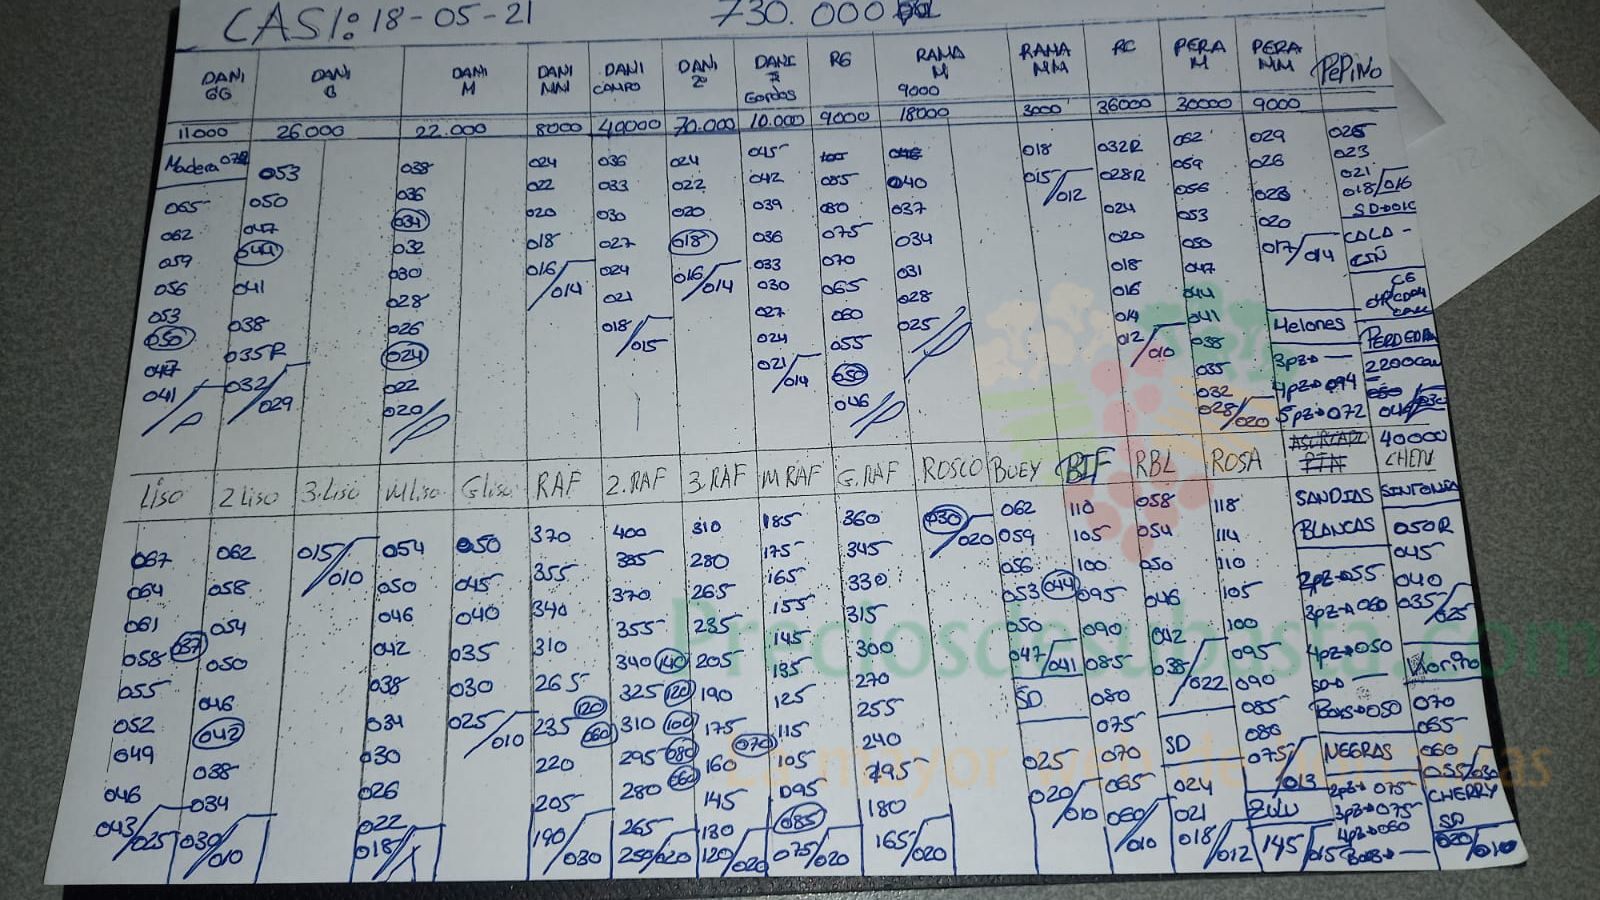 CASI: 18-05-21 730.000
DANI GG DANI G DANI M DANI MM DANI CAMPO DANI 2ª DANI 2 Gordos RG RAMA M 9000 RAMA MM RC PERA M PERA MM PEPINO
11000 26000 22.000 8000 40000 70.000 10.000 9000 18000 3000 36000 30000 9000
Madera 072 053 038 024 036 024 045 018 032R 062 029 025
065 050 036 022 033 022 042 085 040 015/012 028R 059 026 023
062 047 034 020 030 020 039 080 037 024 056 023 021
059 044 032 018 027 018 036 075 034 020 053 020 018/016
056 041 030 016/014 024 016/014 033 070 031 018 050 017/014
053 038 028 021 030 065 028 016 047
050 035R 026 018/015 027 060 025 014 044
047 032/029 024 024 055 012/010 041 Melones
041 022 021/014 050 038 3pz→ —
020 046 035 4pz→094
032 5pz→072
028/020
2200
40000
LISO 2 LISO 3.LISO M LISO G LISO RAF 2.RAF 3.RAF M RAF G.RAF ROSCO BUEY RBL ROSA
067 062 015/010 054 050 370 400 310 185 360 030/020 062 110 058 118 SANDIAS SINTONIA
064 058 050 045 355 385 280 175 345 059 105 054 114 BLANCAS 050R
061 054 046 040 340 370 265 165 330 056 100 050 110 2pz→055 045
058 057 050 042 035 310 355 235 155 315 053 044 095 046 105 3pz→060 040
055 046 038 030 265 340 140 205 145 300 050 090 042 100 4pz→050 035/025
052 042 034 025/010 235 120 325 120 190 135 270 047/041 085 038/022 095
049 038 030 220 060 310 100 175 125 255 SD 080 090 070
046 034 026 205 295 080 160 070 115 240 025 075 SD 085 NEGRAS 065
043/025 030/010 022 190/030 280 060 145 105 195 020/010 070 024 080 2pz→075 060
018 265 130 095 180 065 021 075/013 3pz→075 055/030
250/020 120/020 085 165/020 060/010 018/012 ZULU 4pz→060 CHERRY
075/020 145/015 SD
020/010
Preciosdesubasta.com